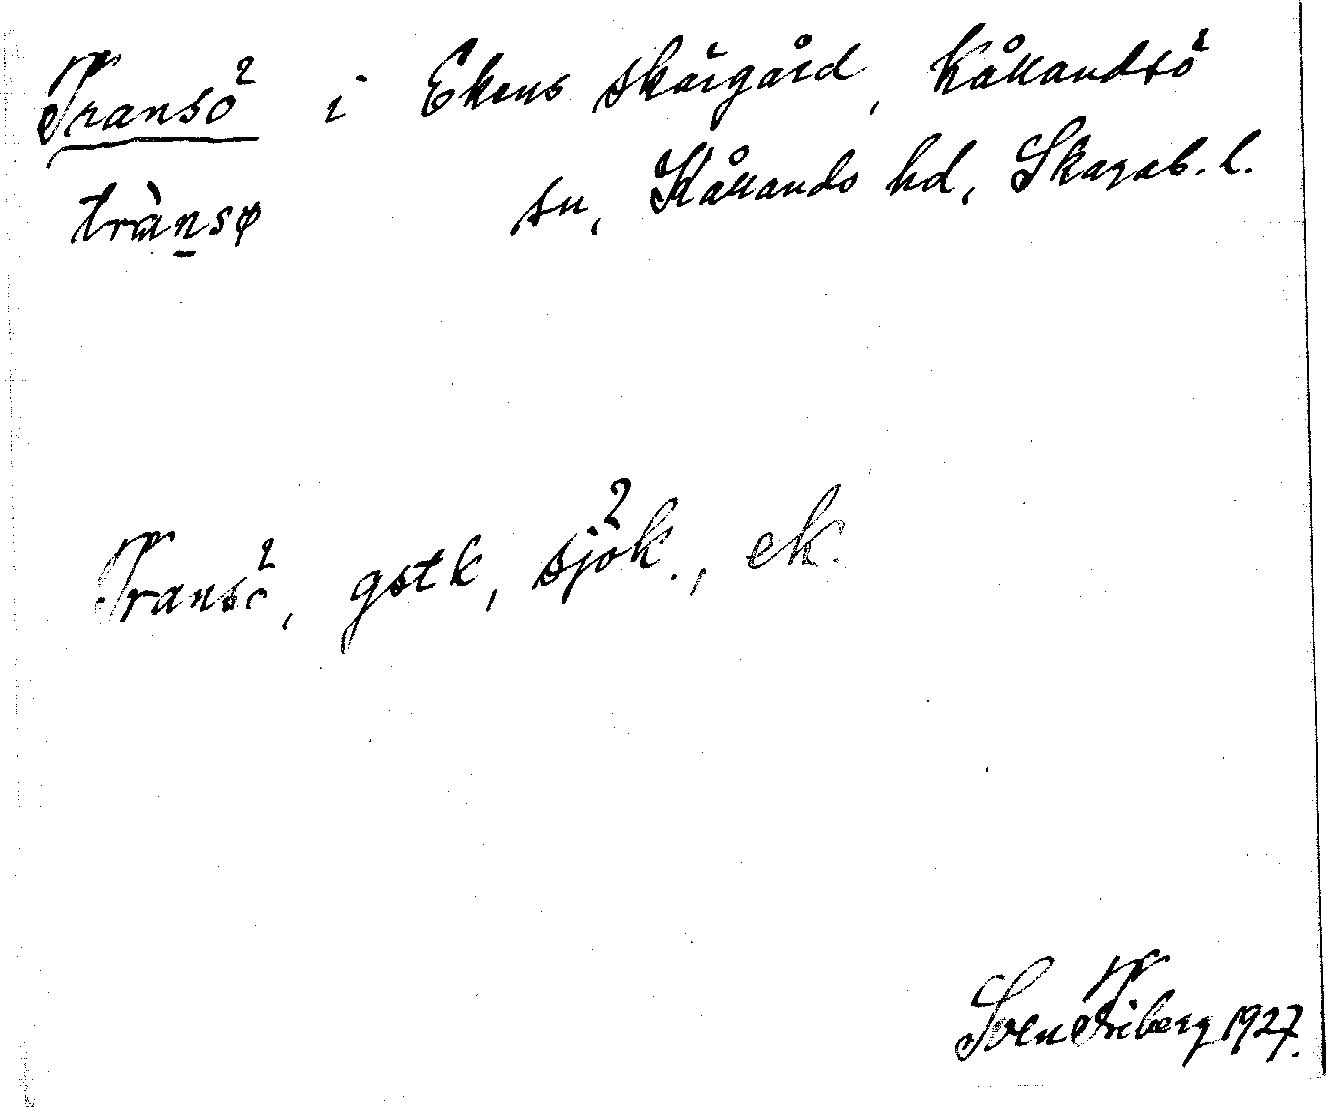 Transö i Ekens skärgård, Kållandsö
trànsø sn, Kållands hd, Skarab. l.
Transö, gstk, sjök., ek.
Sven Friberg 1927.